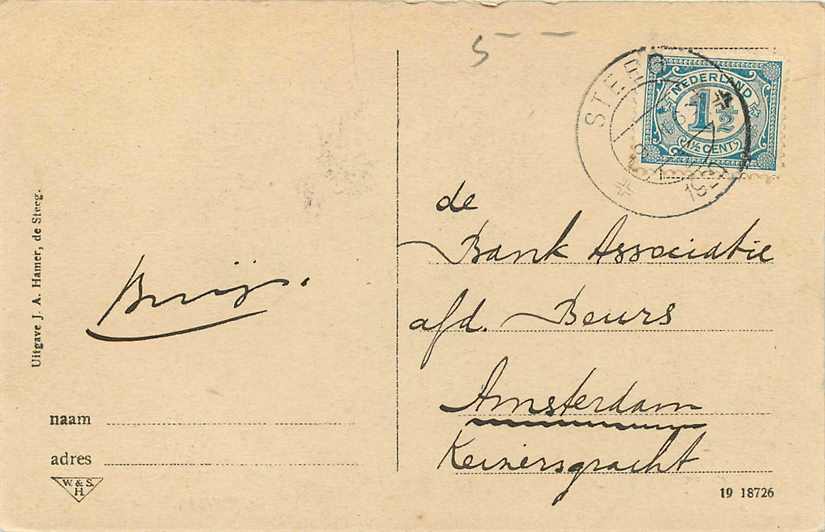 5 - -
STEEG
NEDERLAND
1½
1½ CENT
Uitgave J. A. Hamer, de Steeg.
de
Bank Associatie
afd. Beurs
Amsterdam
Keizersgracht
Buijs.
naam
adres
W. & S.
H.
19 18726